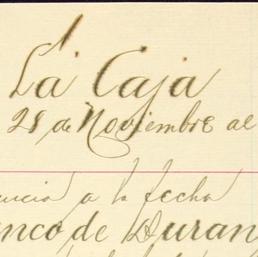 La Caja
28 de Noviembre al
encia a la fecha
anco de Duran